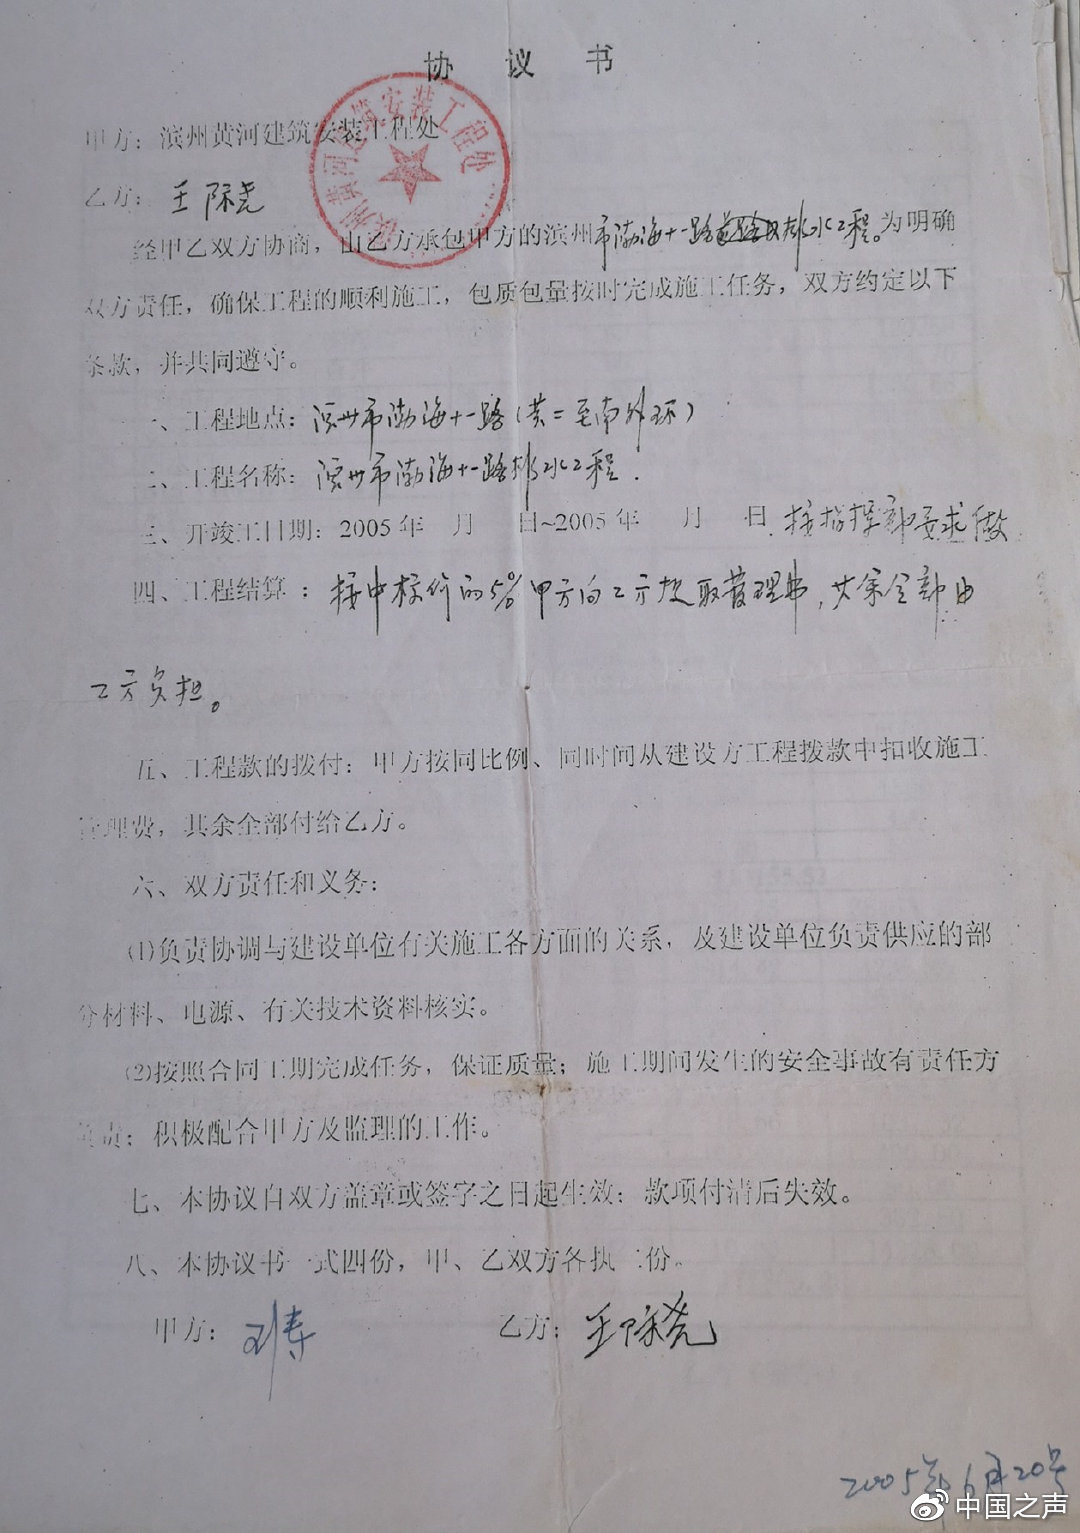 协 议 书
甲方：滨州黄河建筑安装工程处
乙方：王际尧
经甲乙双方协商，由乙方承包甲方的滨州市渤海十一路排水工程。为明确
双方责任，确保工程的顺利施工，包质包量按时完成施工任务，双方约定以下
条款，并共同遵守。
一、工程地点：滨州市渤海十一路（黄二至南外环）
二、工程名称：滨州市渤海十一路排水工程．
三、开竣工日期：2005年 月 日~2005年 月 日．按指挥部要求做
四、工程结算：按中标价的5%甲方向乙方提取管理费，其余全部由
乙方负担。
五、工程款的拨付：甲方按同比例、同时间从建设方工程拨款中扣收施工
管理费，其余全部付给乙方。
六、双方责任和义务：
(1)负责协调与建设单位有关施工各方面的关系，及建设单位负责供应的部
分材料、电源、有关技术资料核实。
(2)按照合同工期完成任务，保证质量；施工期间发生的安全事故有责任方
负责；积极配合甲方及监理的工作。
七、本协议自双方盖章或签字之日起生效；款项付清后失效。
八、本协议书一式四份，甲、乙双方各执二份。
甲方： 乙方：王际尧
2005年6月20号
中国之声